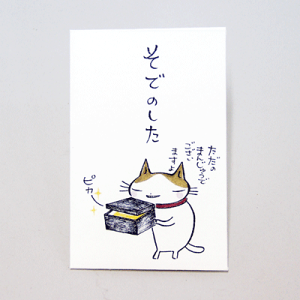 そでのした
ただの
まんじゅうで
ござい
ますよ
ピカー